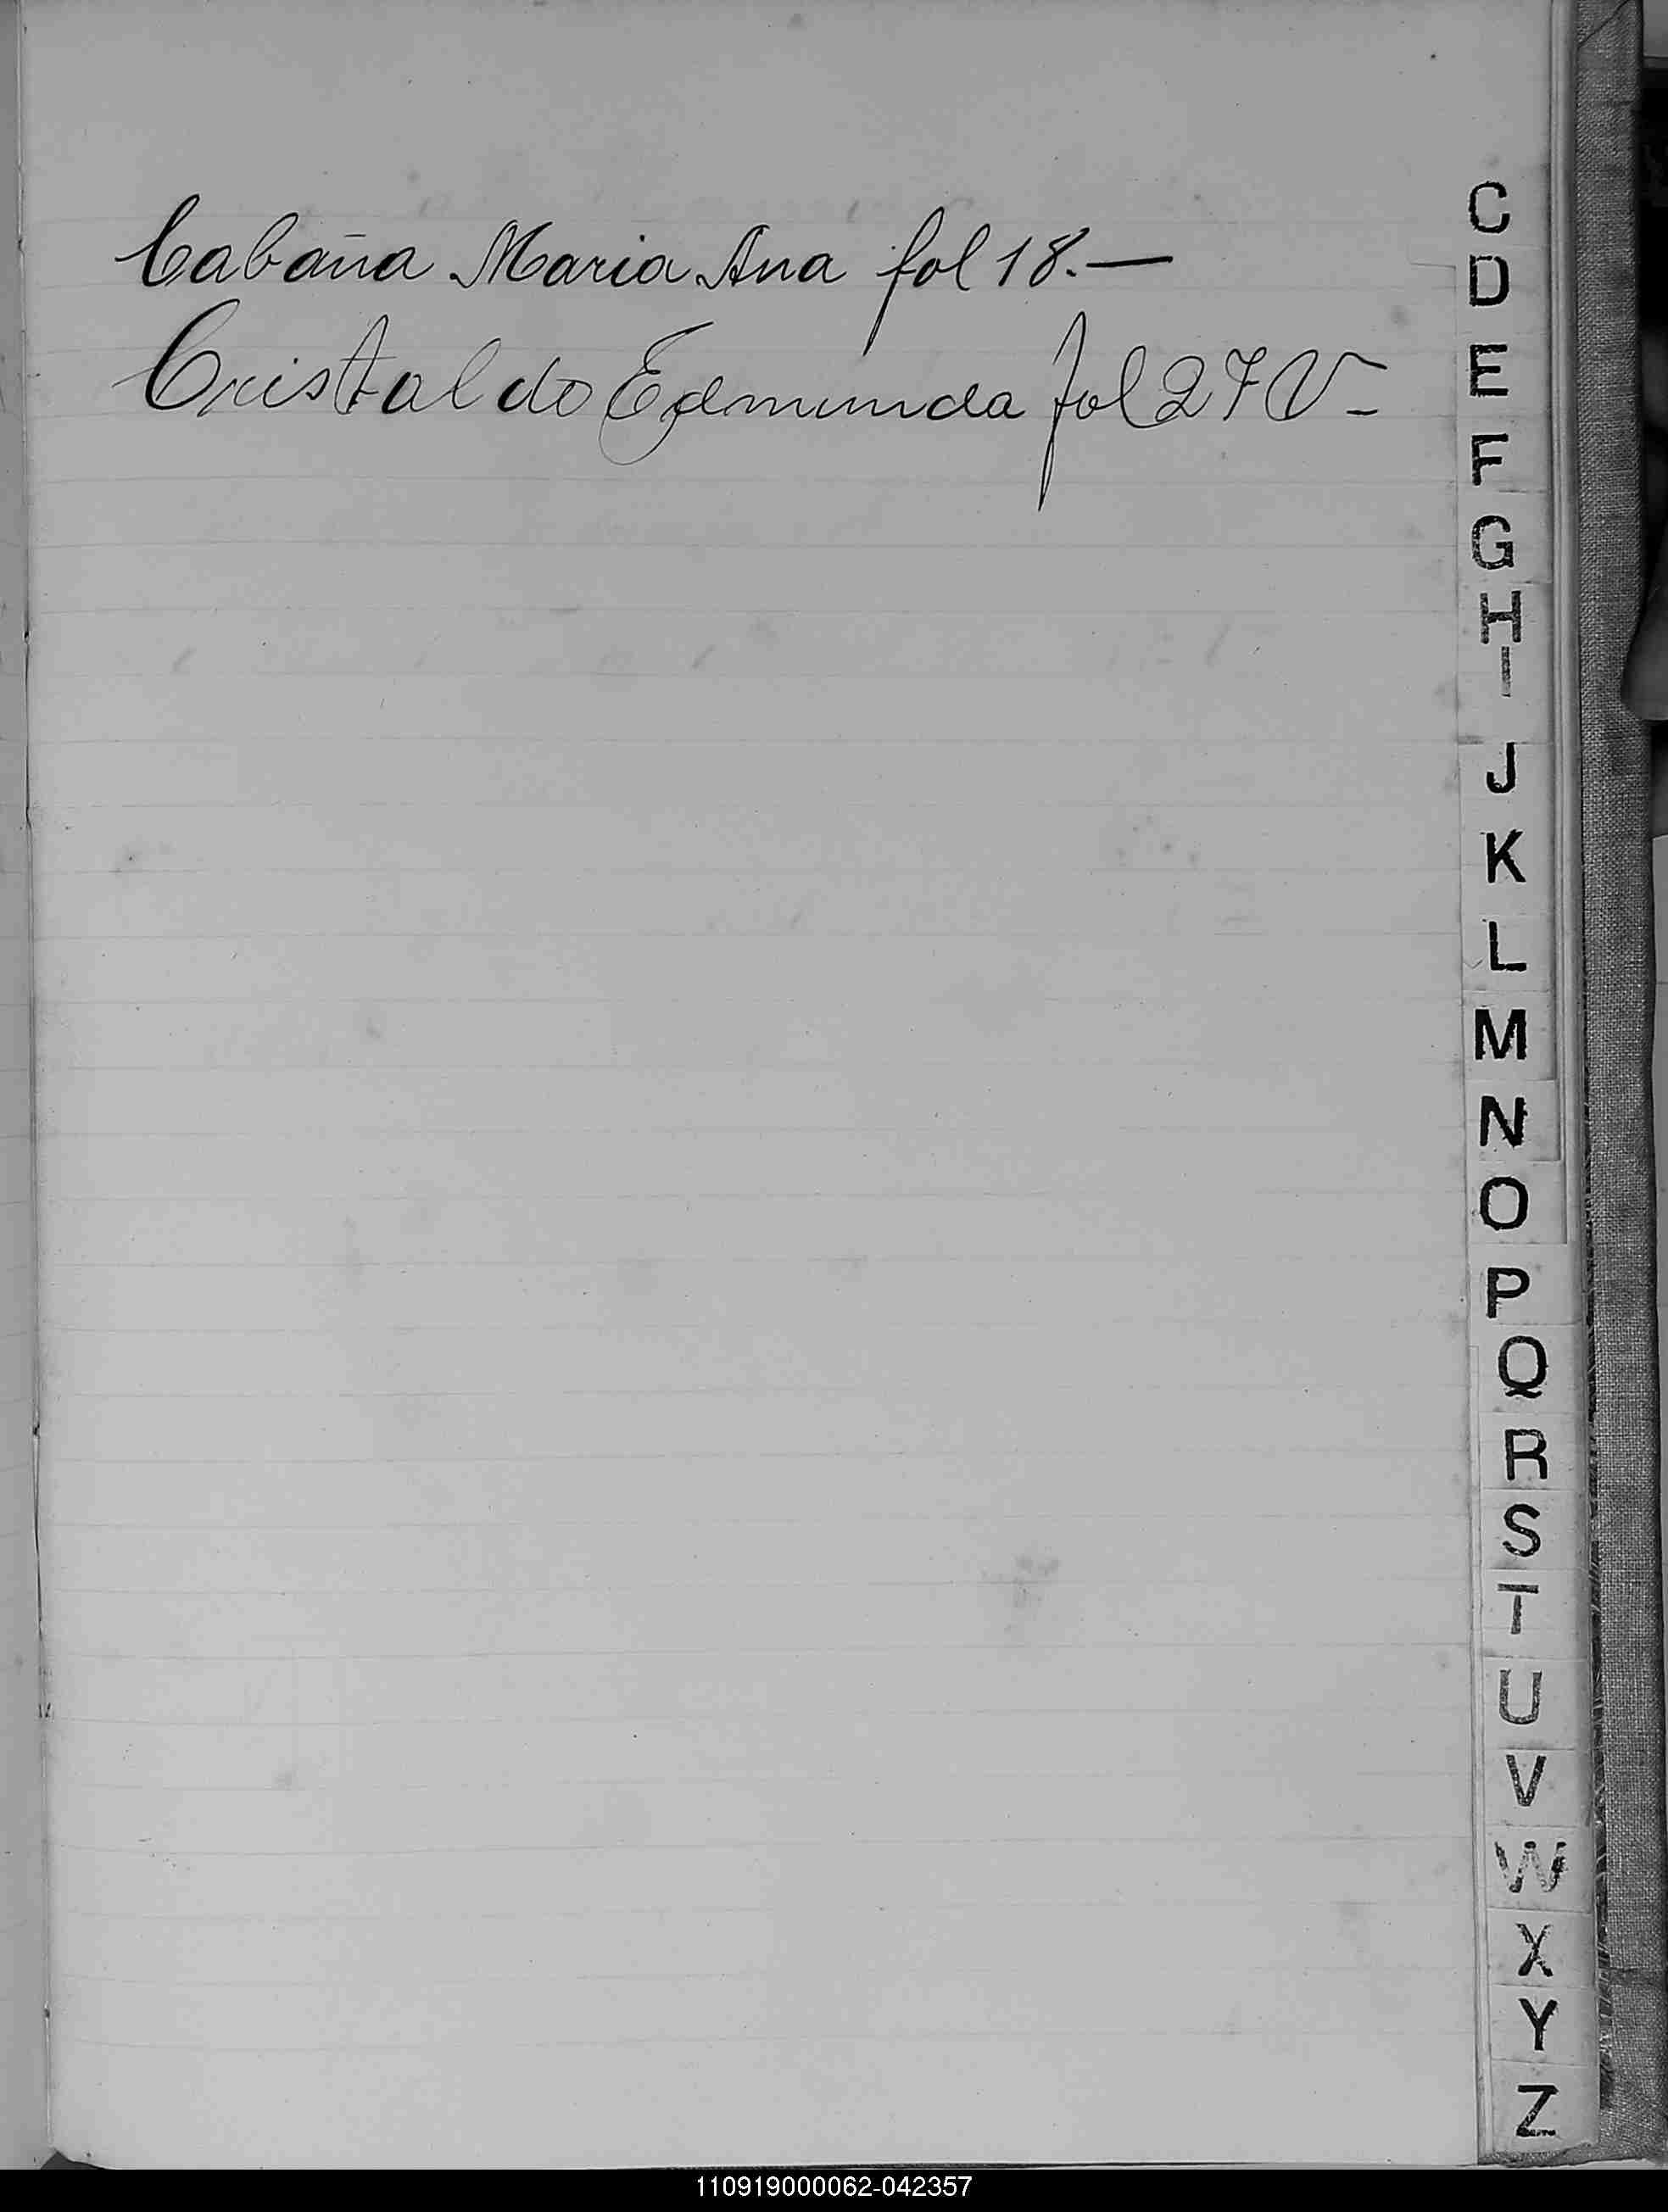 Cabaña Maria Ana fol 18.—
Cristaldo Edmunda fol 27 V—
C
D
E
F
G
H
I
J
K
L
M
N
O
P
Q
R
S
T
U
V
W
X
Y
Z
110919000062-042357